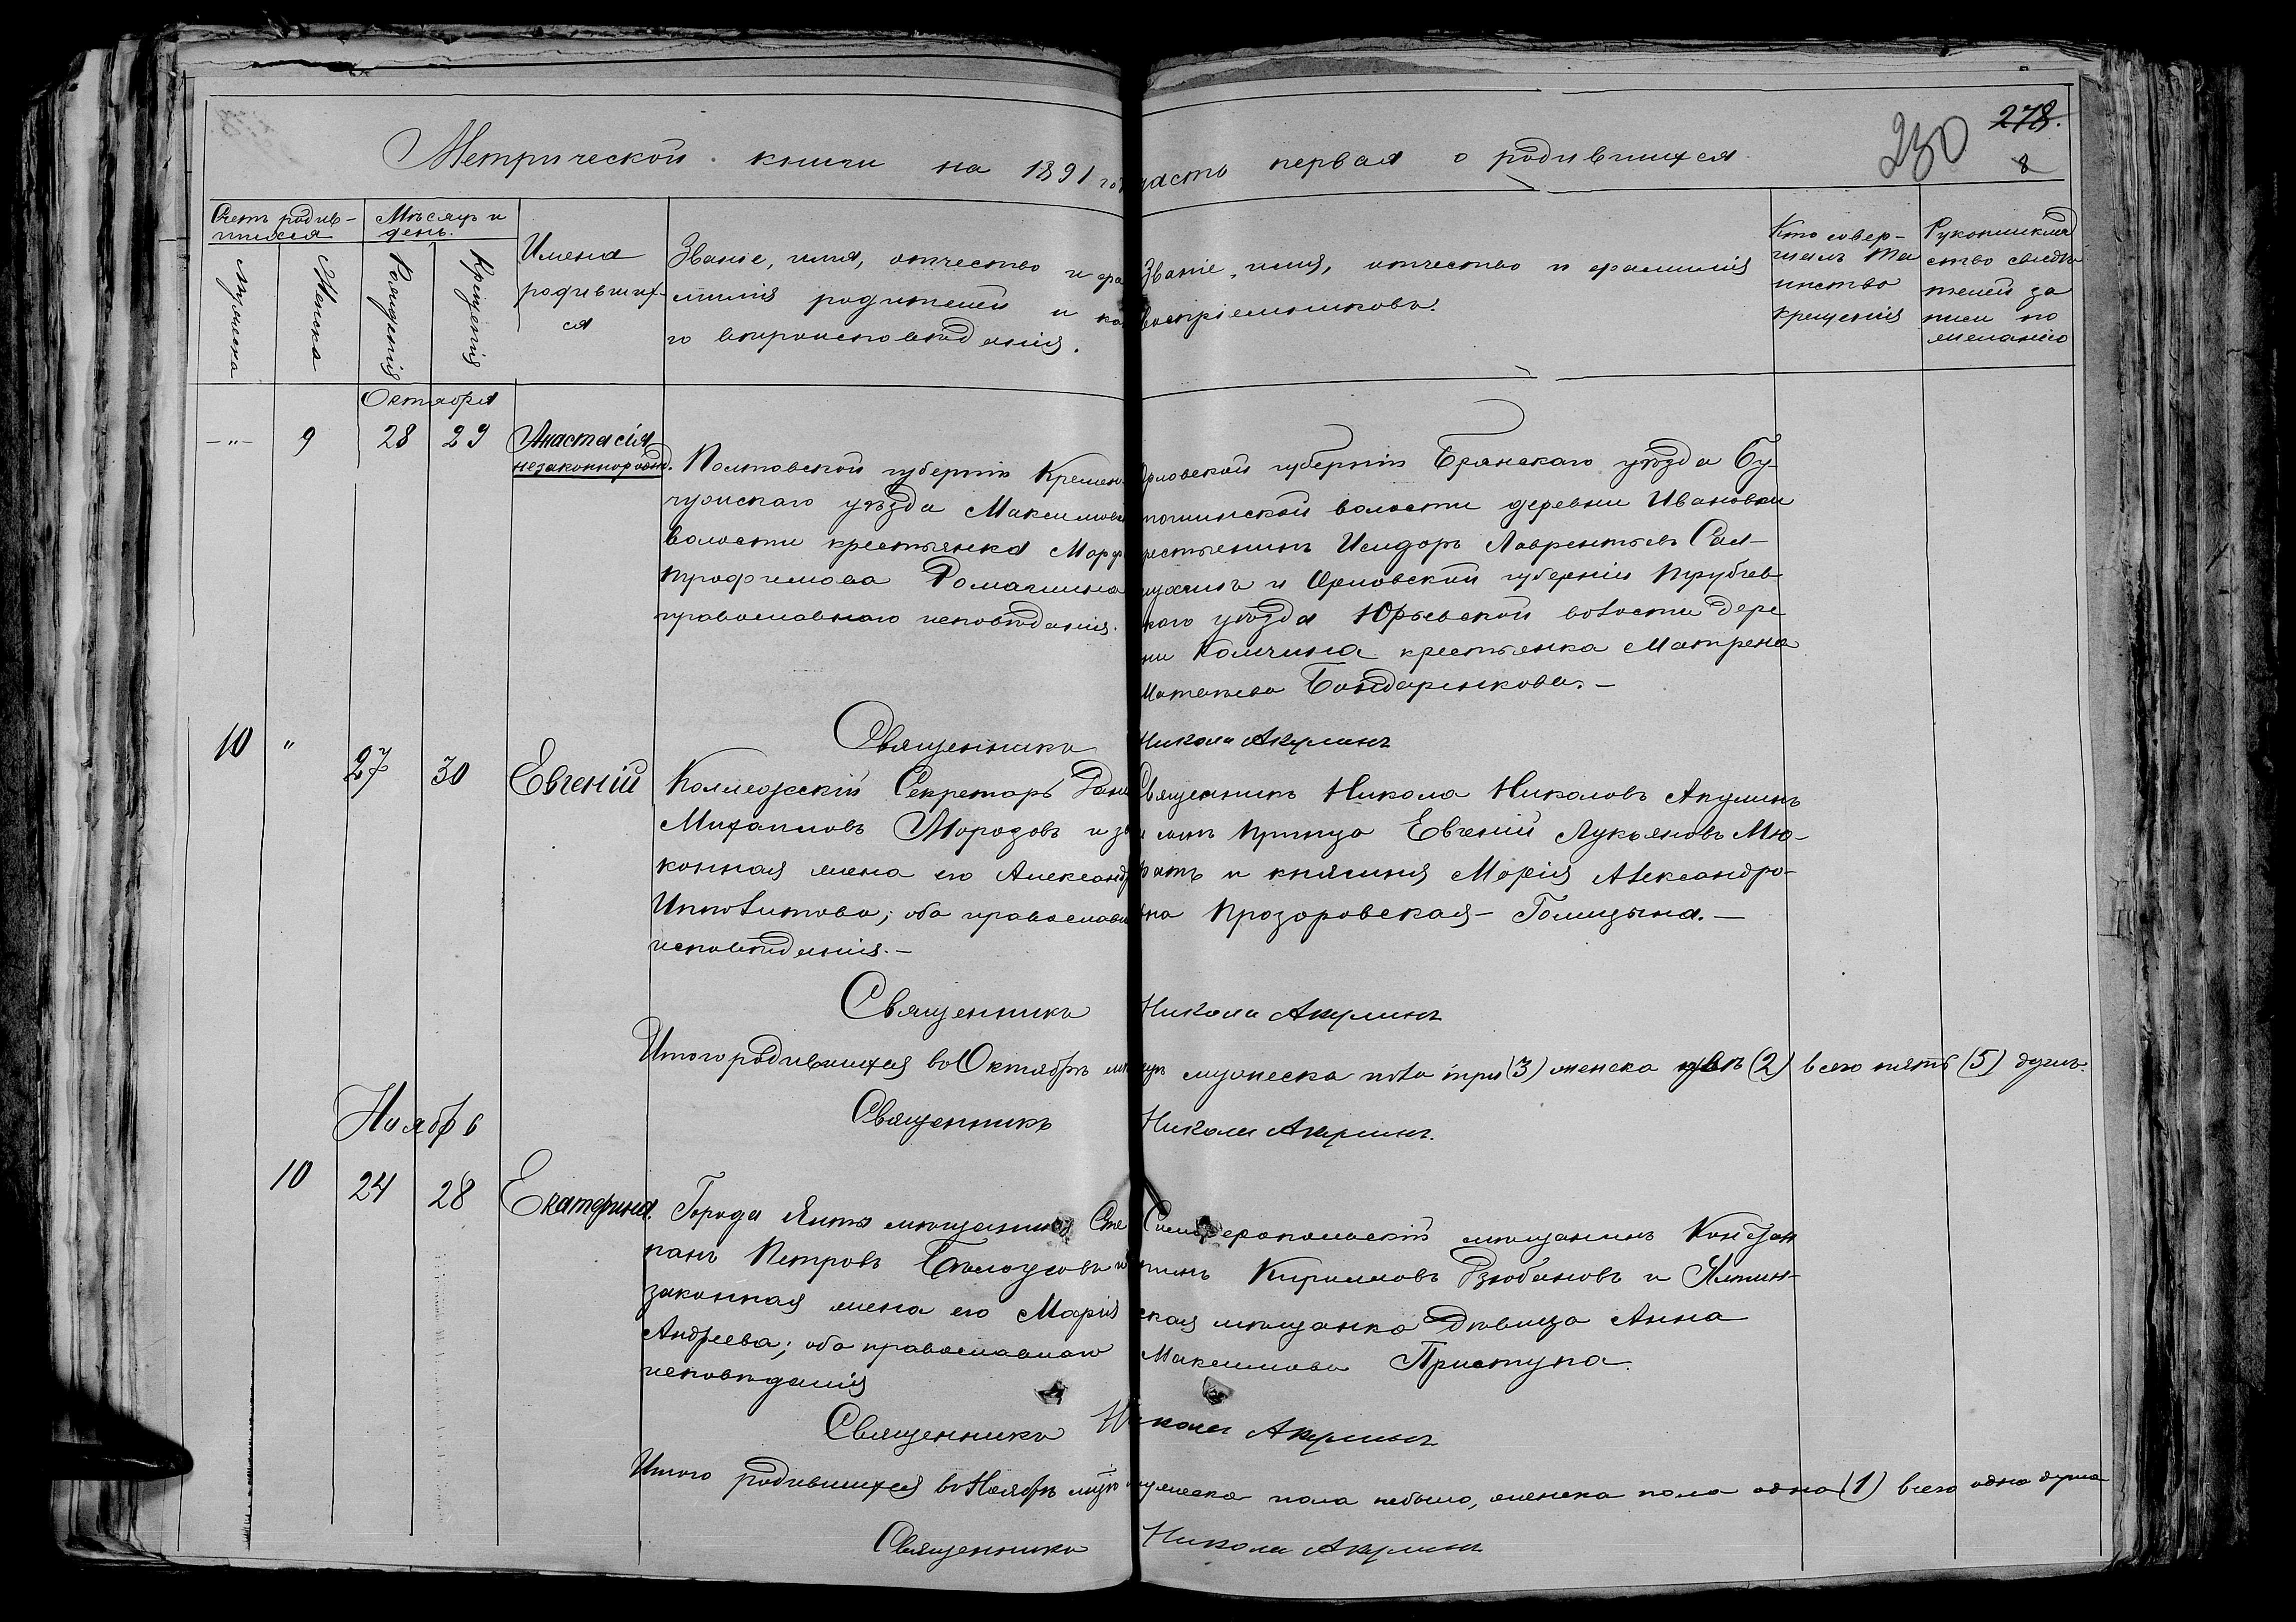 278.
230
8
Метрической книги на 1891 годъ часть первая о родившихся
Счетъ родив-
шихся
Мужеска
Женска
Мѣсяцъ и
день.
Рожденія
Крещенія
Имена
родивших-
ся
Званіе, имя, отчество и фа
милія родителей и ка
го вѣроисповѣданія.
Званіе, имя, отчество и фамилія
воспріемниковъ.
Кто совер-
шалъ та
инство
крещенія
Рукоприклад
ство свидѣ
телей за
писи по
желанію
Октября
-"- 9 28 29
Анастасія
незаконнорожд.
Полтавской губерніи Кремен
чугскаго уѣзда Максимов
волости крестьянка Марф
Трофимова Ромачина
православнаго исповѣданія.
Орловской губерніи Брянскаго уѣзда Бу-
тошинской волости деревни Ивановки
крестьянинъ Исидоръ Лаврентьевъ
и Орловской губерніи Трубчев
каго уѣзда Юрьевской волости дере
ни крестьянка Матрена
Бондаренкова.-
Священникъ Никола Акулинъ
10 " 27 30 Евгеній
Коллежскій Секретарь Дані
Михаиловъ Морозовъ и за
конная жена его Александр
Ипполитова; оба православн
исповѣданія.-
Священникъ Никола Николовъ Акулинъ
Принцъ Евгеній Лукьяновъ Мю-
ратъ и княгиня Марія Александро-
вна Прозоровская-Голицына.-
Священникъ Никола Акулинъ
Итого родившихся въ Октябрѣ мѣсяцѣ мужеска пола три (3) женска двѣ (2) всего пять (5) душъ.
Священникъ Никола Акулинъ.
Ноябрь
10 24 28 Екатерина.
Города Ялты мѣщанинъ Сте
панъ Петровъ Бѣлоусовъ и
законная жена его Марія
Андреева; оба православнаго
исповѣданія
Симферопольскій мѣщанинъ Констан
тинъ Кирилловъ Дзюбановъ и Ялтин-
ская мѣщанка дѣвица Анна
Максимова Приступа.
Священникъ Никола Акулинъ
Итого родившихся въ Ноябрѣ мѣсяцѣ мужеска пола небыло, женска пола одна (1) всего одна душа
Священникъ Никола Акулинъ